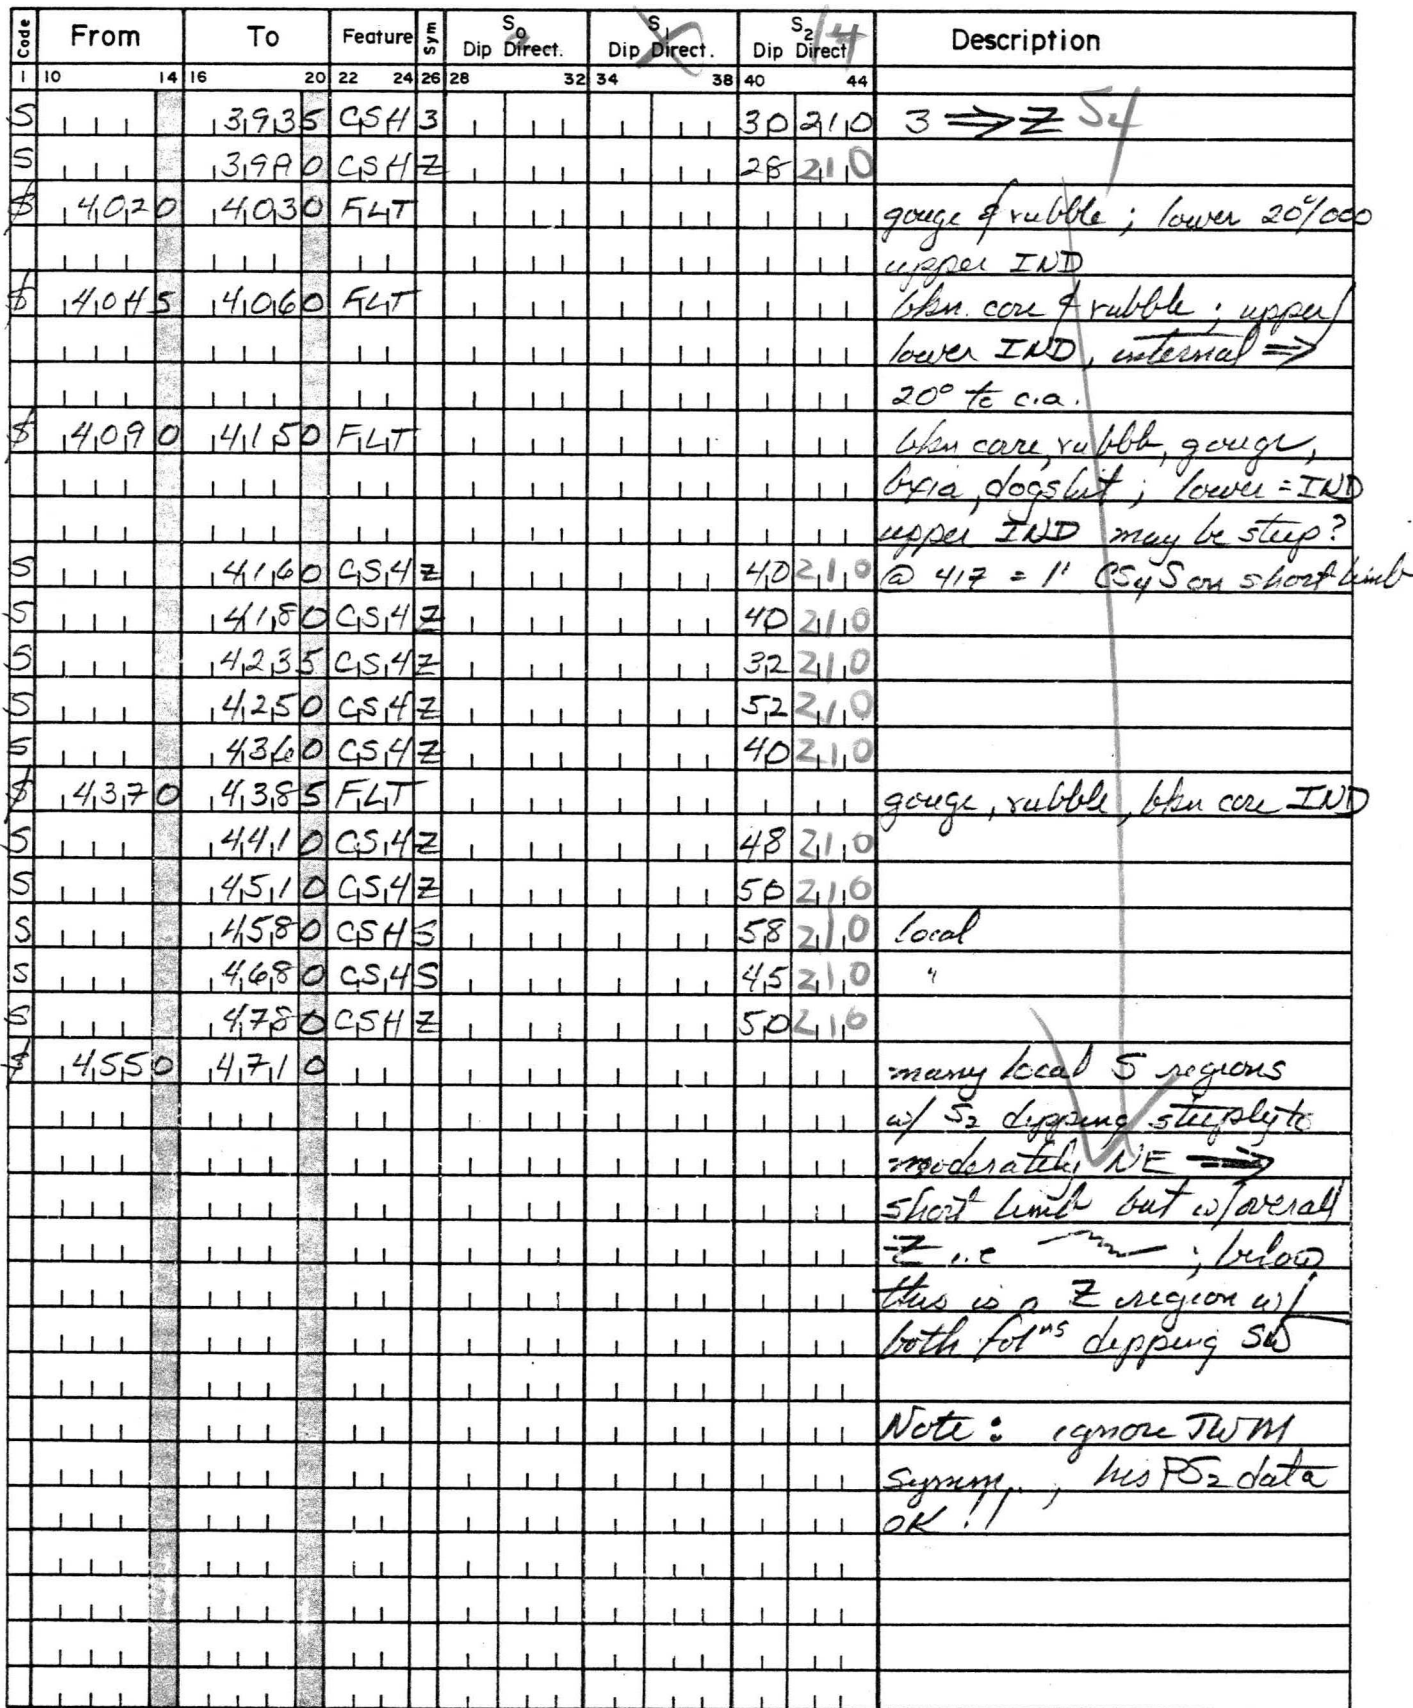 Code From To Feature Sym S0 Dip Direct. S1 Dip Direct. S2 14 Dip Direct Description
1 10 14 16 20 22 24 26 28 32 34 38 40 44
S 3935 CS4 3 30 210 3 ⇒ Z S4
S 3990 CS4 Z 28 210
$ 4020 4030 FLT gouge & rubble ; lower 20°/000
upper IND
$ 4045 4060 FLT bkn. core & rubble ; upper/
lower IND, internal ⇒
20° to c.a.
$ 4090 4150 FLT bkn core, rubble, gouge,
bxia, dogshit ; lower = IND
upper IND may be steep?
S 4160 CS4 Z 40 210 @ 417 = 1' CS4 S on short limb
S 4180 CS4 Z 40 210
S 4235 CS4 Z 32 210
S 4250 CS4 Z 52 210
S 4360 CS4 Z 40 210
$ 4370 4385 FLT gouge, rubble, bkn core IND
S 4410 CS4 Z 48 210
S 4510 CS4 Z 50 210
S 4580 CS4 S 58 210 local
S 4680 CS4 S 45 210 "
S 4780 CS4 Z 50 210
$ 4550 4710 many local S regions
w/ S2 dipping steeply to
moderately NE ⇒
short limb but w/ overall
Z i.e ; below
this is a Z region w/
both fol^ns dipping SW
Note : ignore JWM
Symm, ; his PS2 data
OK !